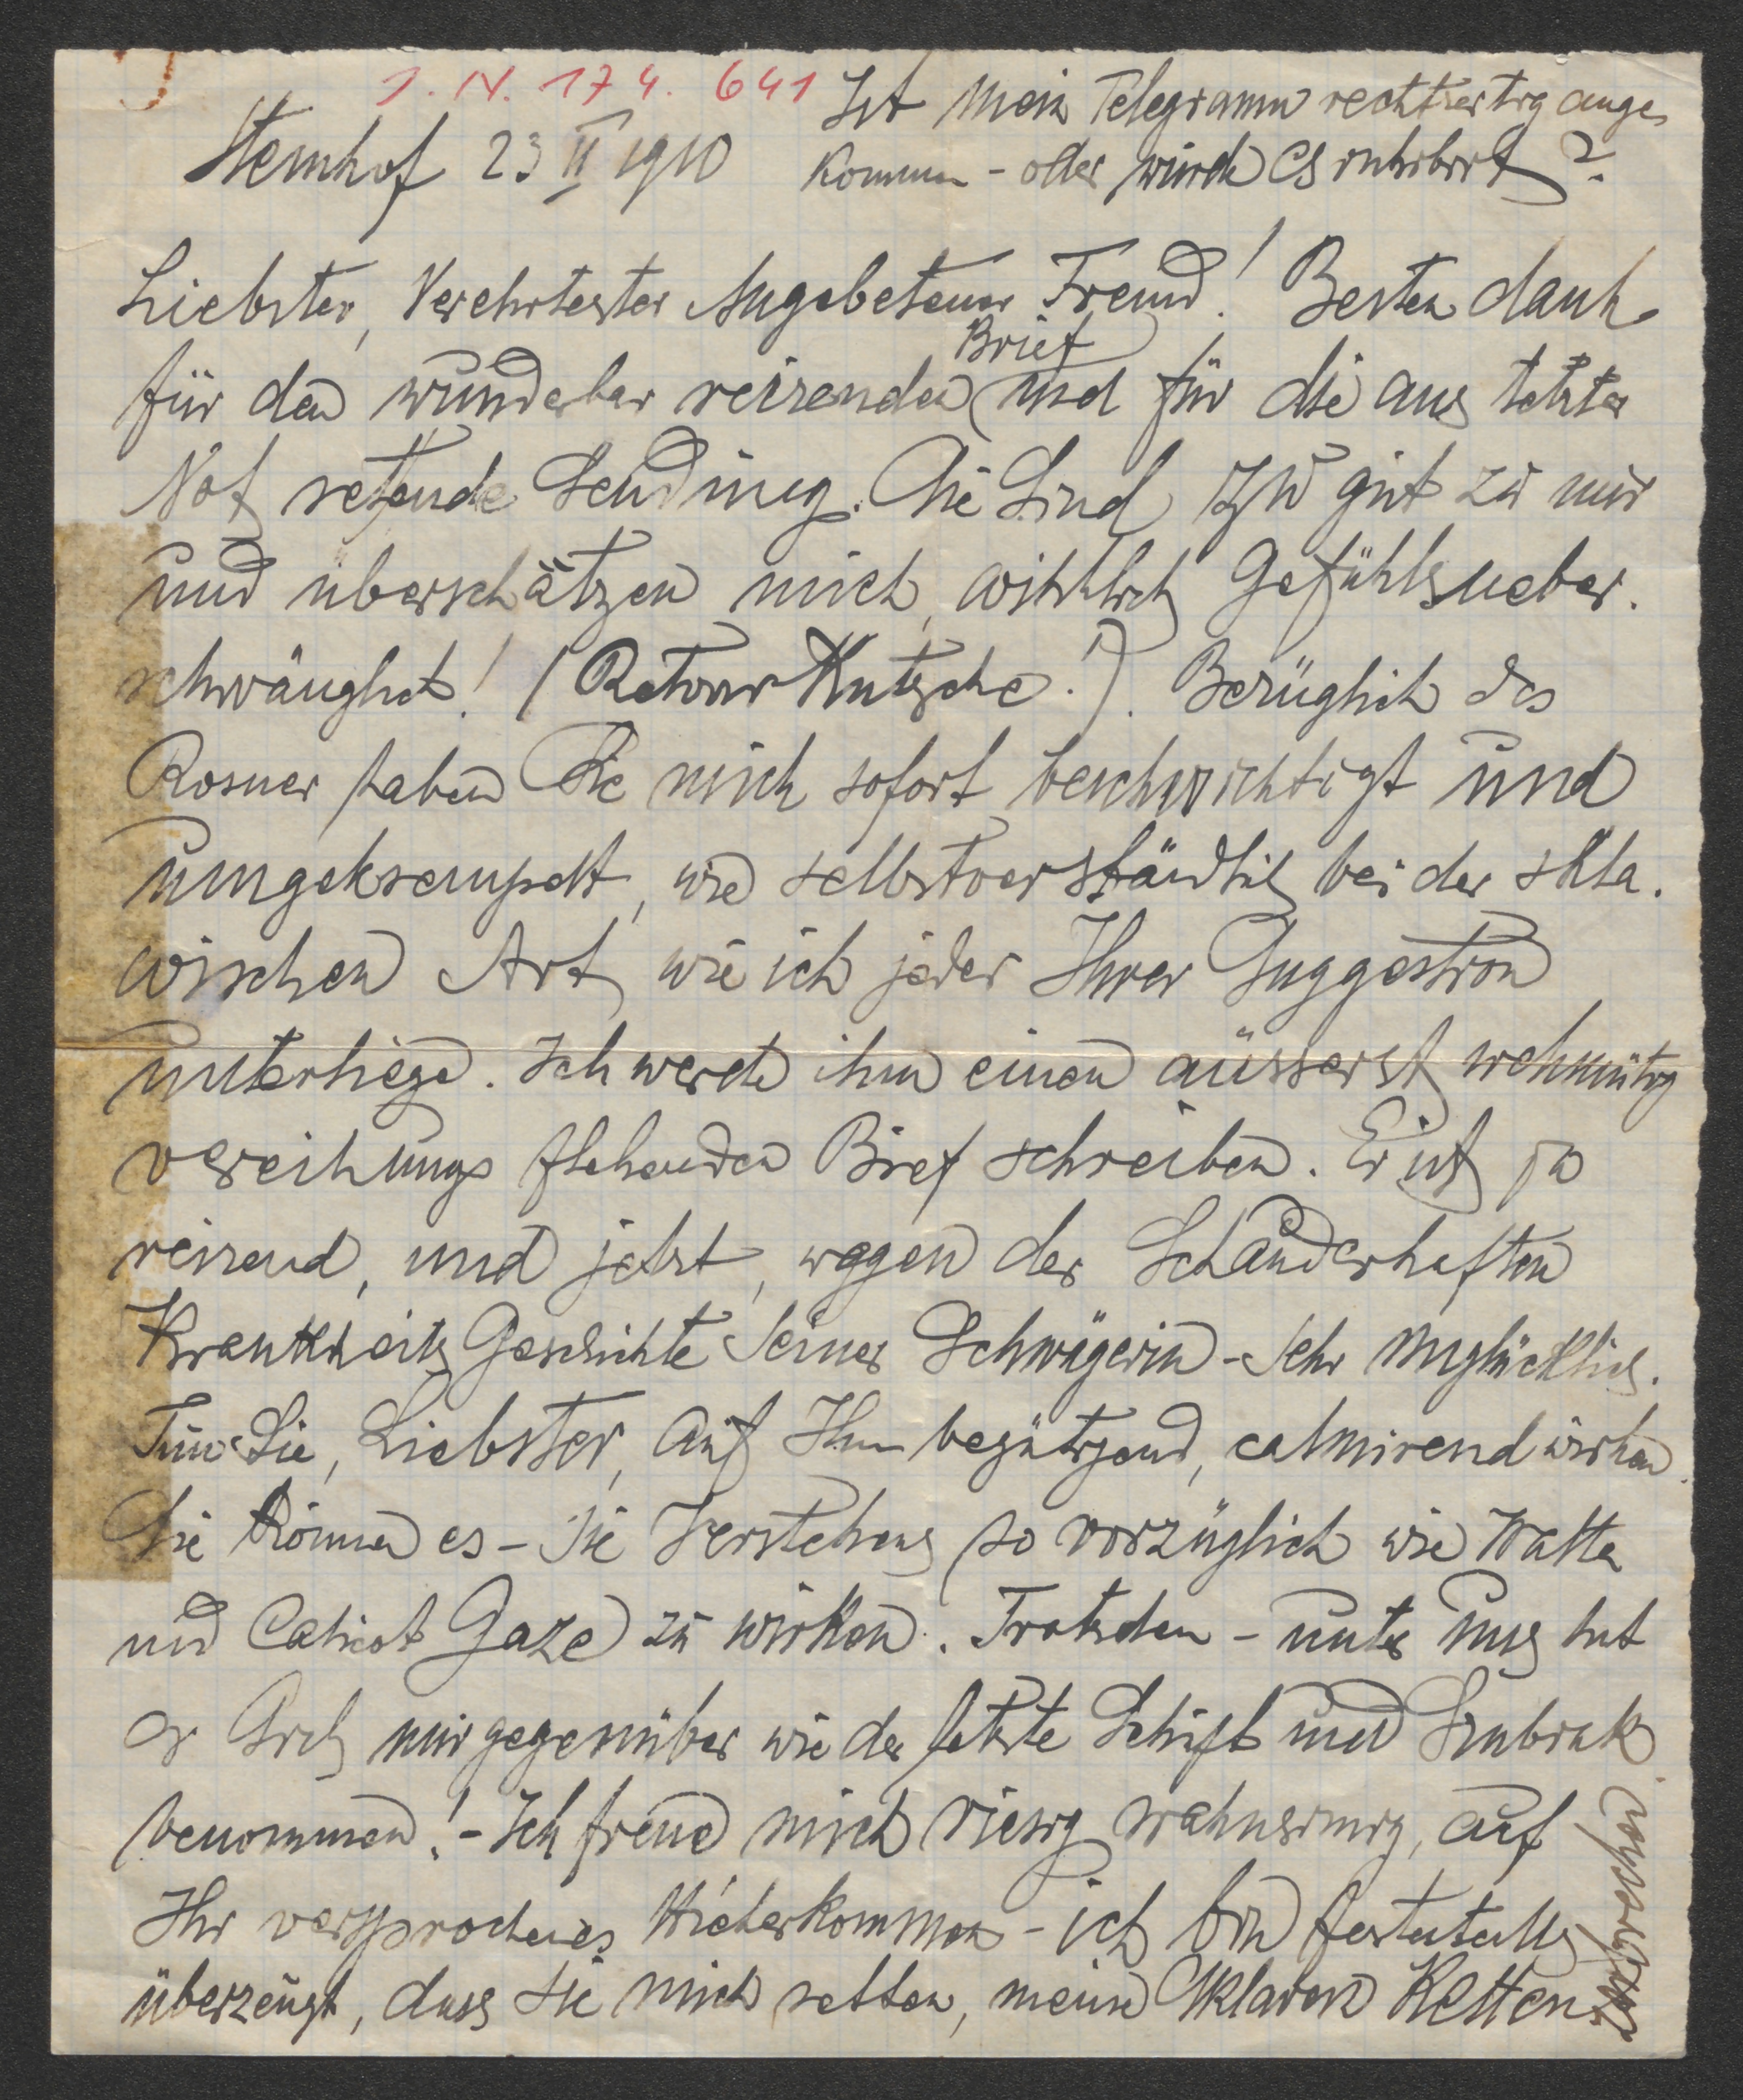 J. N. 174.641
Ist mein Telegramm rechtzeitig ange
kommen - oder wurde es inhibirt?
Steinhof 23 II 1910
Liebster, Verehrtester Angebetener Freund! Besten dank
für den wunderbar reizenden Brief und für die aus letzter
Not retende Sendung. Sie Sind zu gut zu mir
und überschätzen mich, wirklich Gefühlsueber.
schwänglich! (Retour Kutsche!). Bezüglich des
Rosner haben Sie mich sofort beschwichtigt und
umgekrempelt, wie selbstverständlich bei der skla.
wischen Art, wie ich jeder Ihrer Suggestion
unterliege. Ich werde ihm einen äusserst wehmütig
verzeihungs flehenden Brief schreiben. Er ist ja
reizend, und jetzt, wegen der Schauderhaften
Krankheits Geschichte Seiner Schwägerin - Sehr unglücklich.
Tun Sie, Liebster, auf Ihn begütigend, calmirend wirken.
Sie können es - Sie Verstehens so vorzüglich wie Watta
und Calicot Gaze zu wirken. Trotzdem - unter uns hat
er Sich mir gegenüber wie der letzte Schuft und
benommen! - Ich freue mich riesig wahnsinnig, auf
Ihr versprochenes Hieherkommen - ich bin
überzeugt, dass Sie mich retten, meine Sklaven Ketten